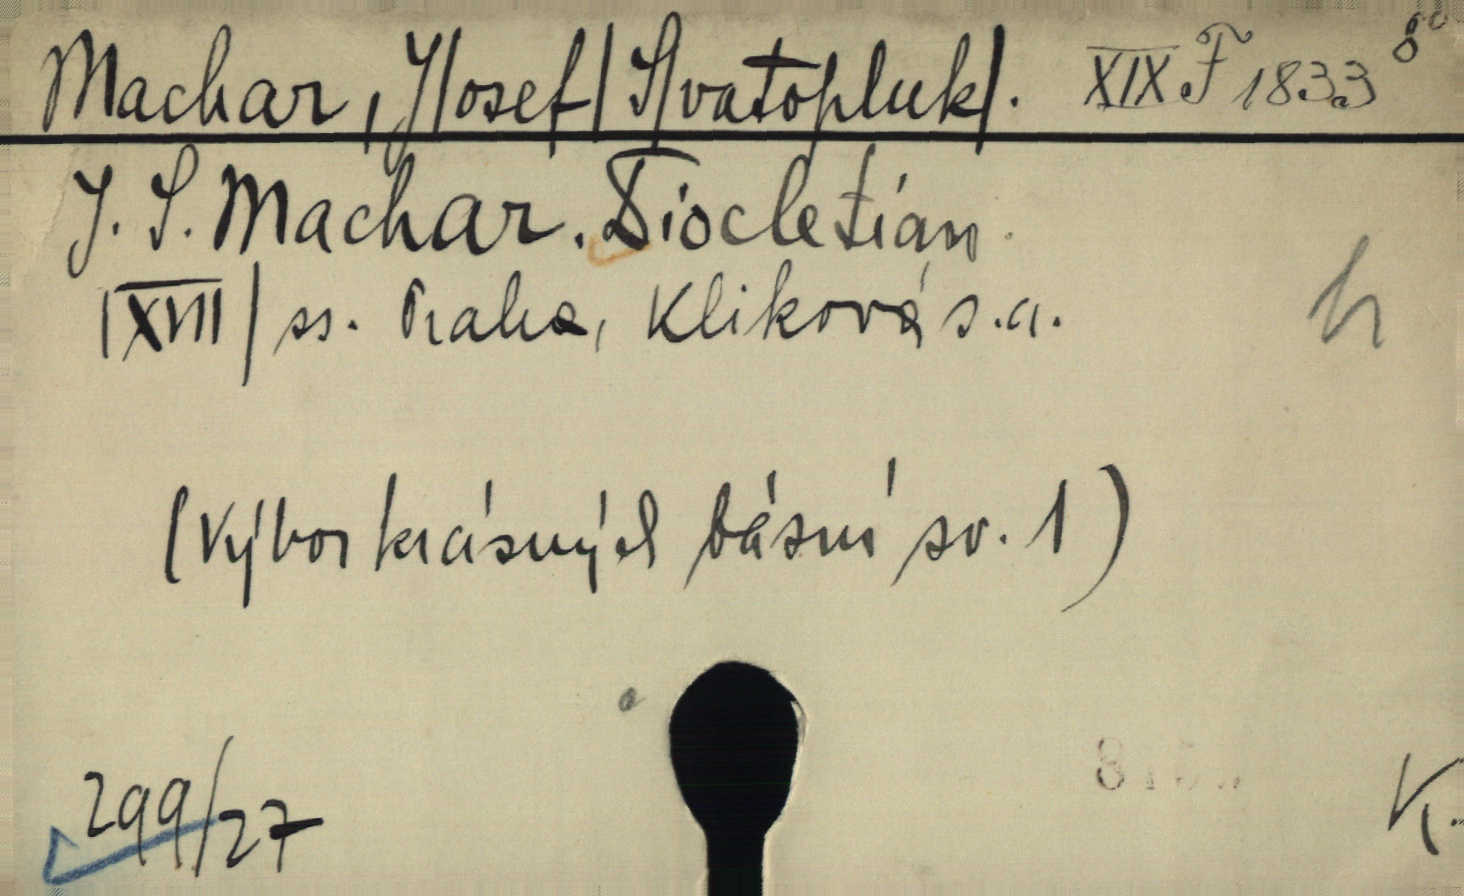 Machar, J/osef/ S/vatopluk/. XIX F 1833 8°
J. S. Machar. Diocletián.
|XVIII| ss. Praha, Kliková s.a.
h
(Výbor krásných básní sv. 1)
299/27
K.